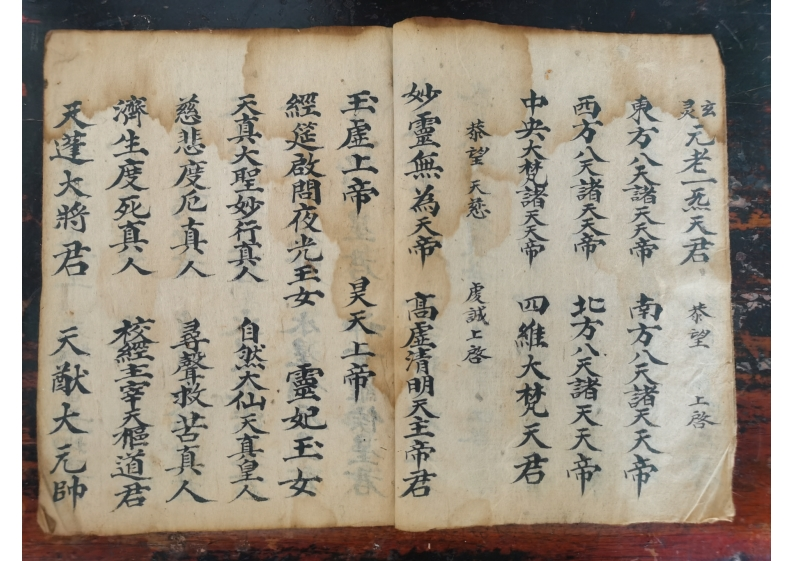 玄灵元老一炁天君 恭望 上啓
東方八天諸天天帝 南方八天諸天天帝
西方八天諸天天帝 北方八天諸天天帝
中央大梵諸天天帝 四維大梵天君
恭望 天慈 虔誠上啓
妙靈無為天帝 高虛清明天主帝君
玉虛上帝 昊天上帝
經筵啟問夜光玉女 靈妃玉女
天真大聖妙行真人 自然大仙天真皇人
慈悲度厄真人 尋聲救苦真人
濟生度死真人 校經主宰天樞道君
天蓬大將君 天猷大元帥